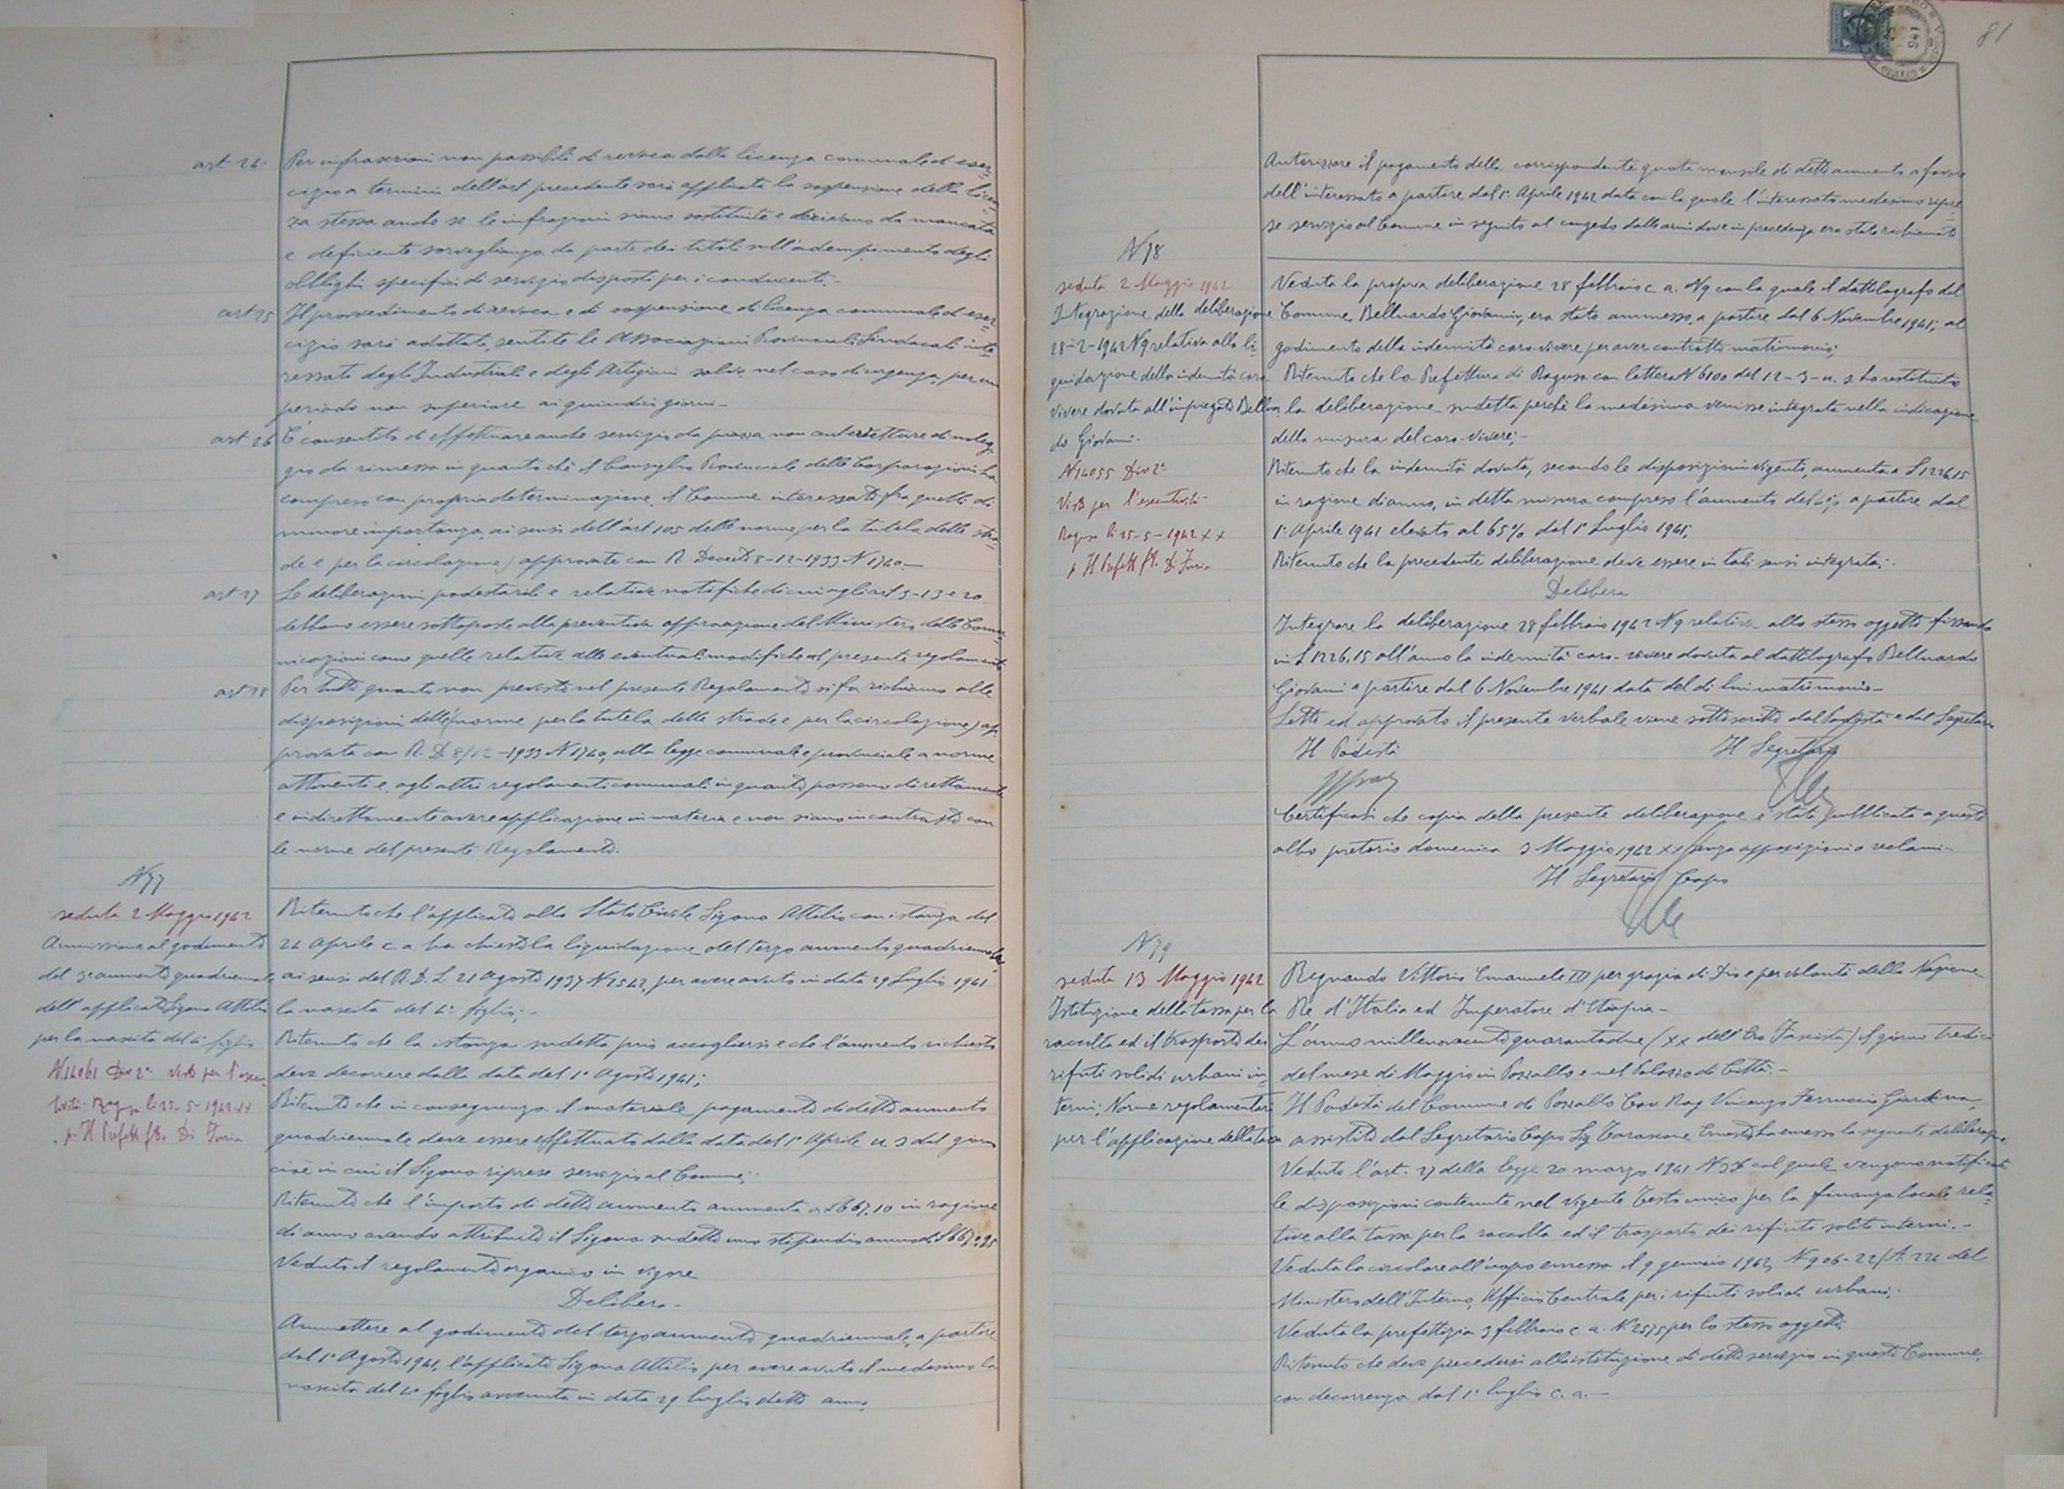 art 24.
Per infrazioni non passibili di revoca della licenza comunale di eser=
cizio a termini dell'art precedente sarà applicata la sospensione della licen=
za stessa anche se le infrazioni siano costituite e derivano da mancata
e deficiente sorveglianza da parte dei titoli sull'adempimento degli
obblighi specifici di servizio disposti per i conducenti.-
art 25
Il provvedimento di revoca e di sospensione di licenza comunale di eser=
cizio sarà adottato, sentite le Associazioni Provinciali Sindacali inte
ressate degli Industriali e degli Artigiani salvo, nel caso di urgenza, per un
periodo non superiore ai quindici giorni-
art 26
È consentito di effettuare anche servizio da piazza non autovetture di noleg
gio da rimessa in quanto chè il Consiglio Provinciale delle Corporazioni ha
compreso con propria determinazione, il Comune interessato fra quelli di
minore importanza, ai sensi dell'art 105 delle norme per la tutela delle stra=
de e per la circolazione, approvate con R. Decreto 8-12-1933 N 1740.-
art 27
Le deliberazioni podestarili e relative notifiche di cui agli art 5-13 e 20
debbono essere sottoposte alla preventiva approvazione del Ministero delle Comu=
nicazioni come quelle relative alle eventuali modifiche al presente regolamento
art 28
Per tutto quanto non previsto nel presente Regolamento si fa richiamo alle
disposizioni delle (norme per la tutela delle strade e per la circolazione) ap=
provata con R. D. 8/12-1933 N 1740, alla legge comunale e provinciale a norme
attinenti e agli altri regolamenti comunali in quanto possano direttamente
e indirettamente avere applicazione in materia e non siano in contrasto con
le norme del presente Regolamento.
N 77
seduta 2 Maggio 1942
Ammissione al godimento
del 3° aumento quadriennale
dell'applicato Sigona Attilio
per la nascita del 4° figlio
N 14061 Div 2a Visto per l'esecu
tività Ragusa li 25-5-1942 XX
p. Il Prefetto fto Di Furia
Ritenuto che l'applicato allo Stato Civile Sigona Attilio con istanza del
24 Aprile c a ha chiesto la liquidazione del terzo aumento quadriennale,
ai sensi del R.D.L. 21 Agosto 1937 N 1542, per avere avuto in data 29 Luglio 1941
la nascita del 4° figlio;-
Ritenuto che la istanza sudetta può accogliersi e che l'aumento richiesto
deve decorrere dalla data del 1° Agosto 1941;
Ritenuto che in conseguenza il materiale pagamento di detto aumento
quadriennale deve essere effettuato dalla data del 1° Aprile u. s dal giorno
cioè in cui il Sigona riprese servizio al Comune;-
Ritenuto che l'importo di detto aumento ammonta a £ 667.10 in ragione
di anno avendo attribuito il Sigona sudetto uno stipendio annuo di
Veduto il regolamento organico in vigore
Delibera-
Ammettere al godimento del terzo aumento quadriennale, a partire
dal 1° Agosto 1941, l'applicato Sigona Attilio per avere avuto il medesimo la
nascita del 4° figlio avvenuta in data 29 luglio detto anno,
81
Autorizzare il pagamento della corrispondente quota mensile di detto aumento a favore
dell'interessato a partire dal 1° Aprile 1942 data con la quale l'interessato medesimo ripre=
se servizio al Comune in seguito al congedo dalle armi dove in precedenza era stato richiamato
N 78
seduta 2 Maggio 1942
Integrazione della deliberazione
28-2-1942 N 9 relativa alla li=
quidazione della indennità caro
vivere dovuta all'impiegato Belluar
do Giovanni.
N 14055 Div 2a
Visto per l'esecutività
Ragusa li 25-5-1942 XX
p Il Prefetto fto Di Furia
Veduta la propria deliberazione 28 febbraio c a. N 9 con la quale il dattilografo del
Comune, Belluardo Giovanni, era stato ammesso, a partire dal 6 Novembre 1941, al
godimento della indennità caro-vivere per aver contratto matrimonio;
Ritenuto che la Prefettura di Ragusa con lettera N 6100 del 12-3-u. s. ha restituito
la deliberazione sudetta perchè la medesima venisse integrata nella indicazione
della misura del caro-vivere;-
Ritenuto che la indennità dovuta, secondo le disposizioni vigenti, ammonta a £ 1226,15
in ragione di anno, in detta misura compreso l'aumento del % a partire dal
1° Aprile 1941 elevato al 65% dal 1° Luglio 1941;
Ritenuto che la precedente deliberazione deve essere in tali sensi integrata;.
Delibera
Integrare la deliberazione 28 febbraio 1942 N 9 relativa allo stesso oggetto fissando
in £ 1226,15 all'anno la indennità caro-vivere dovuta al dattilografo Belluardo
Giovanni a partire dal 6 Novembre 1941 data del di lui matrimonio-
Letto ed approvato il presente verbale viene sottoscritto dal Podestà e dal Segretario
Il Podestà Il Segretario
Certificasi che copia della presente deliberazione è stata pubblicata a questo
albo pretorio domenica 3 Maggio 1942 XX senza opposizioni o reclami-
Il Segretario Capo
N 79
seduta 13 Maggio 1942
Istituzione della tassa per la
raccolta ed il trasporto dei
rifiuti solidi urbani in=
terni; Norme regolamentari
per l'applicazione della tassa
Regnando Vittorio Emanuele III per grazia di Dio e per volontà della Nazione
Re d'Italia ed Imperatore d'Etiopia-
L'anno millenovecentoquarantadue (XX dell'Era Fascista) il giorno tredici
del mese di Maggio in Pozzallo e nel Palazzo di Città.-
Il Podestà del Comune di Pozzallo Cav. Rag Vincenzo Ferruccio Giardina,
assistito dal Segretario Capo Sig Tarascone Ernesto, ha emesso la seguente deliberazione
Veduto l'art. 27 della legge 20 marzo 1941 N 366 col quale vengono notificate
le disposizioni contenute nel vigente Testo unico per la finanza locale rela=
tive alla tassa per la raccolta ed il trasporto dei rifiuti solidi interni.-
Veduta la circolare all'uopo emessa il 9 gennaio 1942, N 906-22/A.224 del
Ministero dell'Interno, Ufficio Centrale per i rifiuti solidi urbani;
Veduta la prefettizia 3 febbraio c. a. N 2575 per lo stesso oggetto;
Ritenuto che deve procedersi alla istituzione di detto servizio in questo Comune,
con decorrenza dal 1° luglio c. a.-